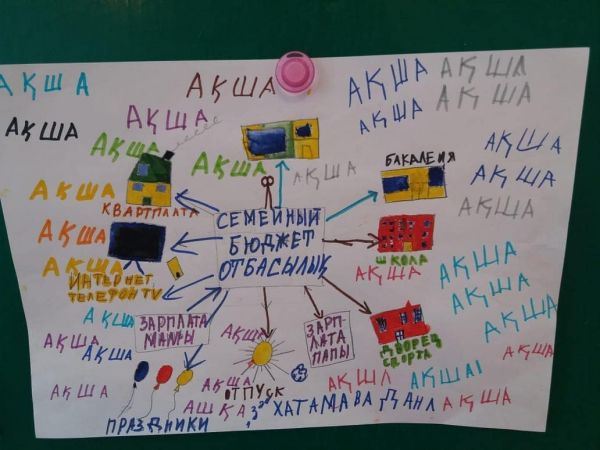 АҚША
АҚША
АҚША
АҚША
АҚША
АҚША
АҚША
АҚША
АҚША
АҚША
АҚША
АҚША
АҚША
АҚША
БАКАЛЕЯ
АҚША
АҚША
КВАРТПЛАТА
СЕМЕЙНЫЙ
БЮДЖЕТ
ОТБАСЫЛЫҚ
АҚША
АҚША
ШКОЛА
АҚША
АҚША
ИНТЕРНЕТ
ТЕЛЕФОН TV
АҚША
АҚША
АҚША
ЗАРПЛАТА
МАМЫ
АҚША
ЗАРП-
ЛАТА
ПАПЫ
ДВОРЕЦ
СПОРТА
АҚША
АҚША
АҚША
АҚША
АҚША
ОТПУСК
АҚША
АҚША
АҚША
АШҚА
ХАТАМАВА
ПРАЗДНИКИ